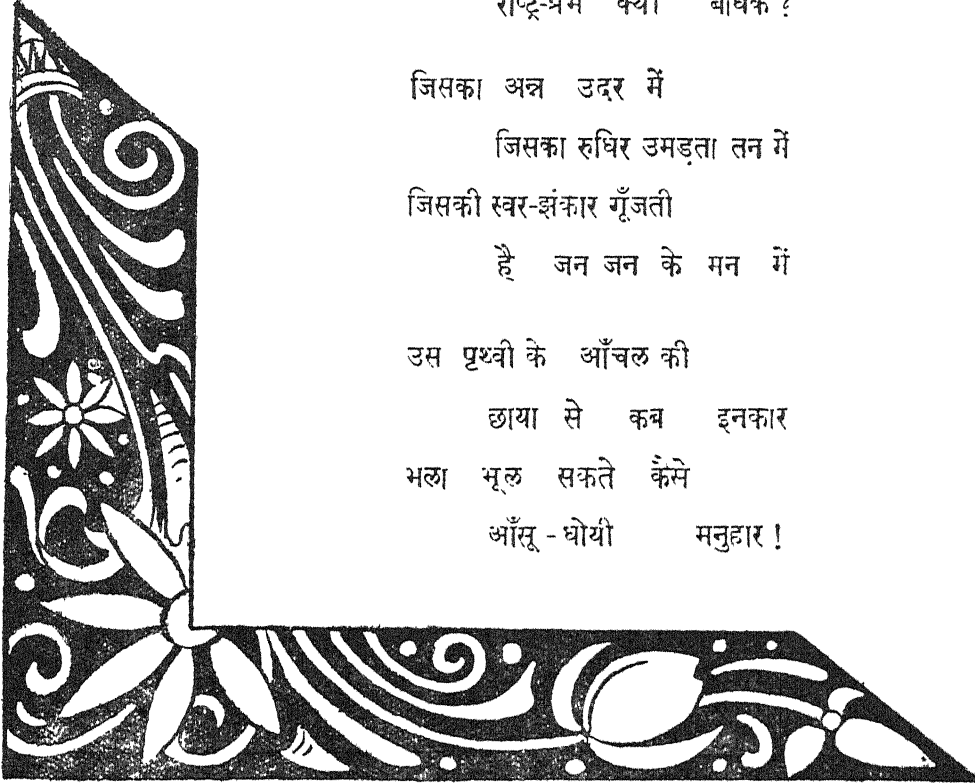 राष्ट्र-प्रेम क्यों बाधक ?
जिसका अन्न उदर में
जिसका रुधिर उमड़ता तन में
जिसकी स्वर-झंकार गूँजती
है जन जन के मन में
उस पृथ्वी के आँचल की
छाया से कब इनकार
भला भूल सकते कैसे
आँसू - धोयी मनुहार !